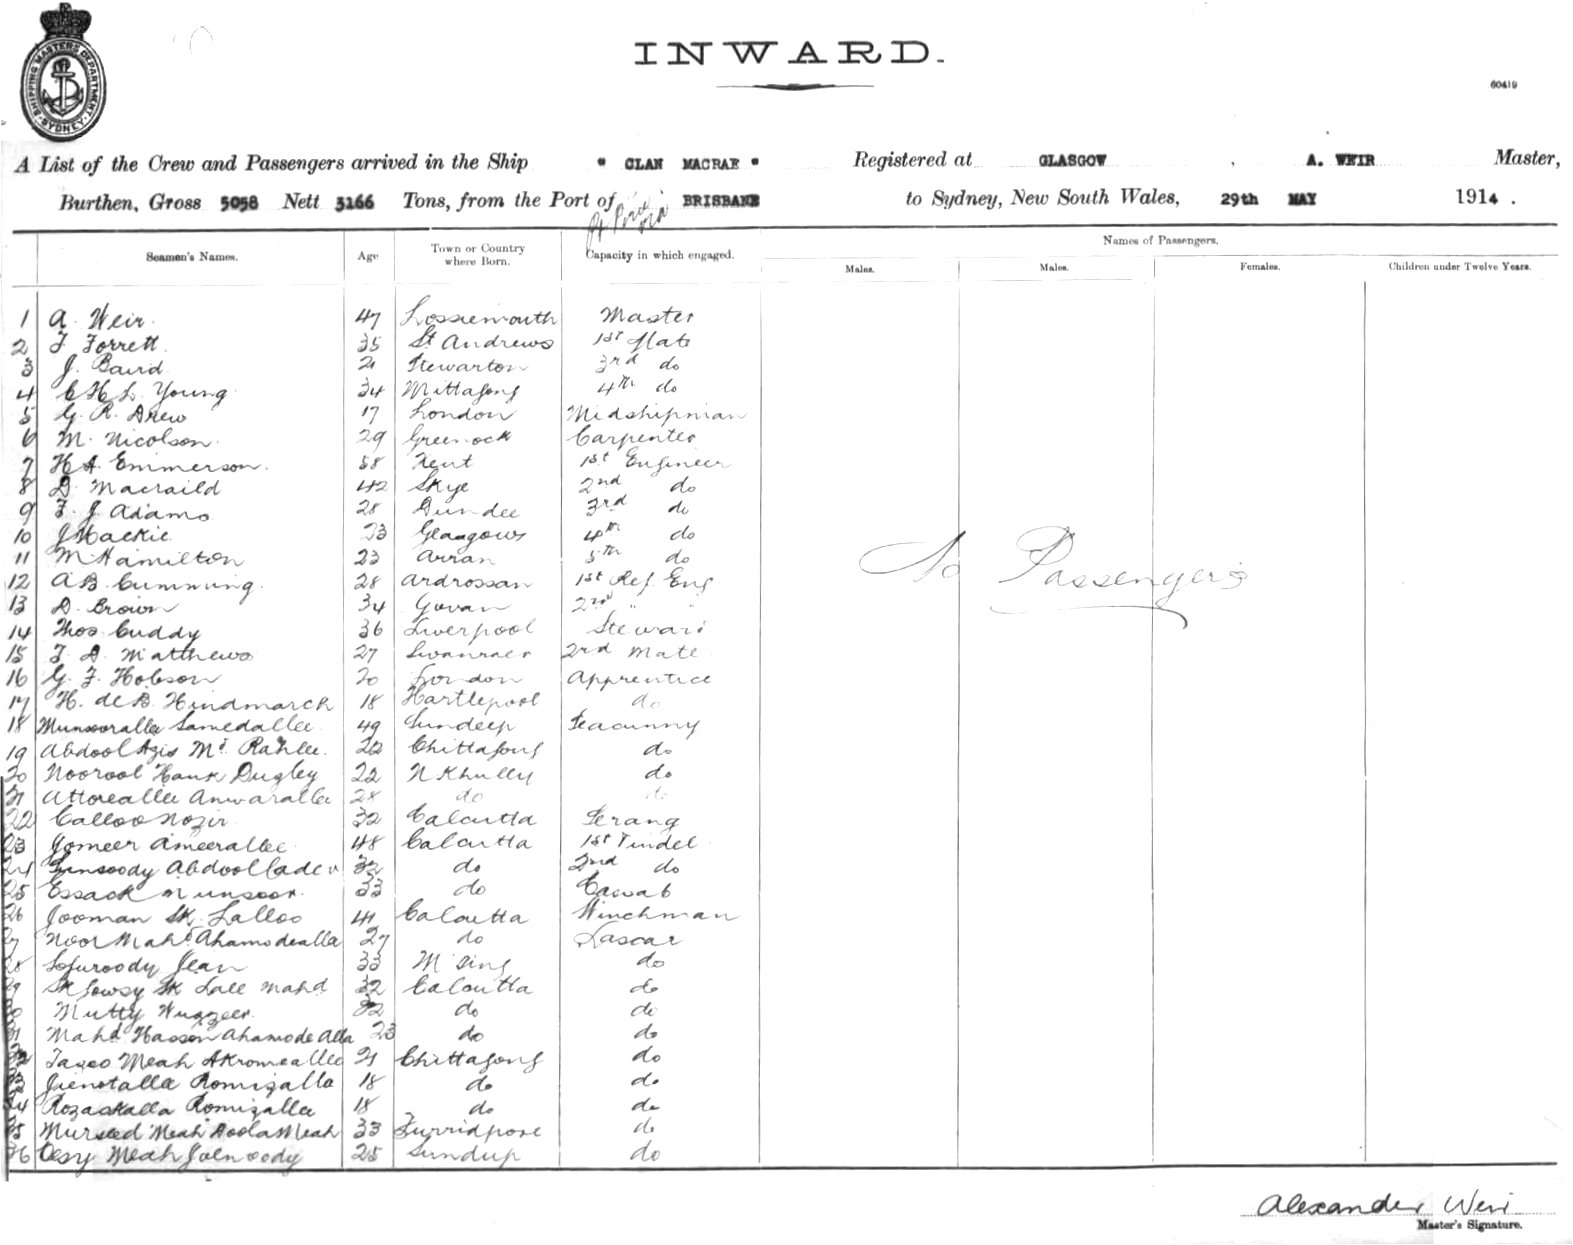 SHIPPING MASTERS DEPARTMENT SYDNEY
INWARD.
60419
A List of the Crew and Passengers arrived in the Ship " CLAN MACRAE " Registered at GLASGOW , A. WEIR Master,
Burthen, Gross 5058 Nett 3166 Tons, from the Port of BRISBANE to Sydney, New South Wales, 29th MAY 1914 .
Pt Pirie via
Seamen's Names. Age Town or Country where Born. Capacity in which engaged. Names of Passengers.
Males. Males. Females. Children under Twelve Years.
1 A. Weir 47 Lossiemouth Master
2 F Forrett 35 St Andrews 1st Mate
3 J. Baird 21 Stewarton 3rd do
4 C H L. Young 34 Mittagong 4th do
5 G. R. Drew 17 London Midshipman
6 M. Nicolson 29 Greenock Carpenter
7 H A. Emmerson 58 Kent 1st Engineer
8 D. Macraild 42 Skye 2nd do
9 F. J Adams 28 Dundee 3rd do
10 J Mackie 23 Glasgow 4th do
11 M Hamilton 23 Arran 5th do
12 A B. Cumming 28 Ardrossan 1st Ref. Eng
13 D. Brown 34 Govan 2nd " "
14 Thos Cuddy 36 Liverpool Steward
15 F. A. Matthews 27 Swansea 2nd Mate
16 G. F. Hobson 20 London Apprentice
17 H. de B. Hindmarch 18 Hartlepool do
18 Munsoralla Samedallee 49 Sundeep Seacunny
19 Abdool Azis Md. 22 Chittagong do
20 Noorool Hauk Dugley 22 N Khully do
21 Attorealla Anwaralla 28 do do
22 Calloo Nozir 32 Calcutta Serang
23 Jomeer Ameerallee 48 Calcutta 1st Tindel
24 Abdool Cader 32 do 2nd do
25 Essack Munsoor 33 do Cassab
26 Jooman Sk. Lalloo 41 Calcutta Winchman
27 Noor Mahd Ahamodealla 27 do Lascar
28 Jean 33 M Sing do
29 Sk Gowsy Sk Lall Mahd 32 Calcutta do
30 Mutty Wuzzeer 32 do do
31 Mahd Hassen Ahamode Alla 23 do do
32 Meah Akromeallee 21 Chittagong do
33 Jienotalla Romizalla 18 do do
34 Rozackalla Romizalla 18 do do
35 Mursed Meah Doola Meah 33 Furridpore do
36 Oesy Meah 25 Sundup do
No Passengers
Alexander Weir
Master's Signature.